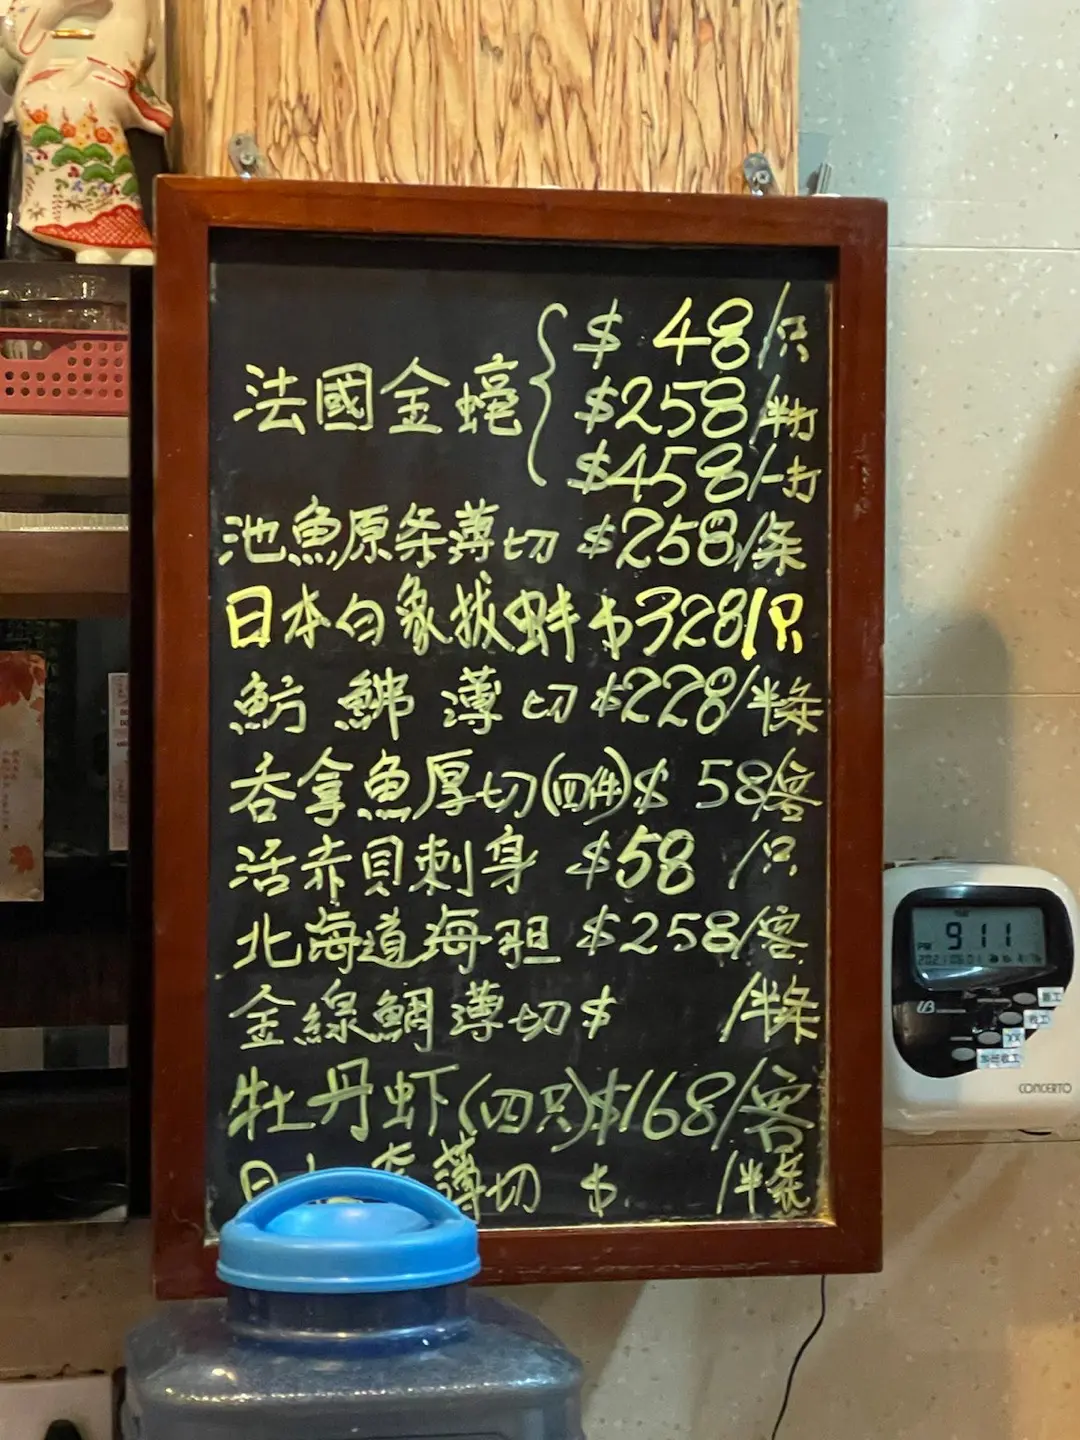 $ 48/只
法國金蠔 $258/半打
$458/一打
池魚原条薄切 $258/条
日本白象拔蚌 $328/只
魴鮄薄切 $228/半条
吞拿魚厚切(四件) $ 58/客
活赤貝刺身 $58 /只
北海道海胆 $258/客
金線鯛薄切 $ /半条
牡丹虾(四只) $168/客
日 薄切 $ /半条
PM 9 11
收工
加班收工
CONCERTO